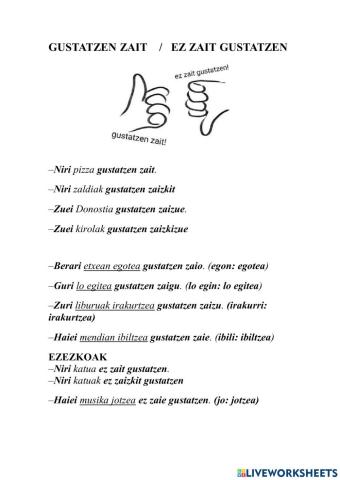 GUSTATZEN ZAIT / EZ ZAIT GUSTATZEN
ez zait gustatzen!
gustatzen zait!
–Niri pizza gustatzen zait.
–Niri zaldiak gustatzen zaizkit
–Zuei Donostia gustatzen zaizue.
–Zuei kirolak gustatzen zaizkizue
–Berari etxean egotea gustatzen zaio. (egon: egotea)
–Guri lo egitea gustatzen zaigu. (lo egin: lo egitea)
–Zuri liburuak irakurtzea gustatzen zaizu. (irakurri:
irakurtzea)
–Haiei mendian ibiltzea gustatzen zaie. (ibili: ibiltzea)
EZEZKOAK
–Niri katua ez zait gustatzen.
–Niri katuak ez zaizkit gustatzen
–Haiei musika jotzea ez zaie gustatzen. (jo: jotzea)
LIVEWORKSHEETS